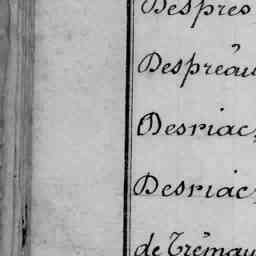 Desprès
Despréau
Desriac,
Desriac,
de Trémau